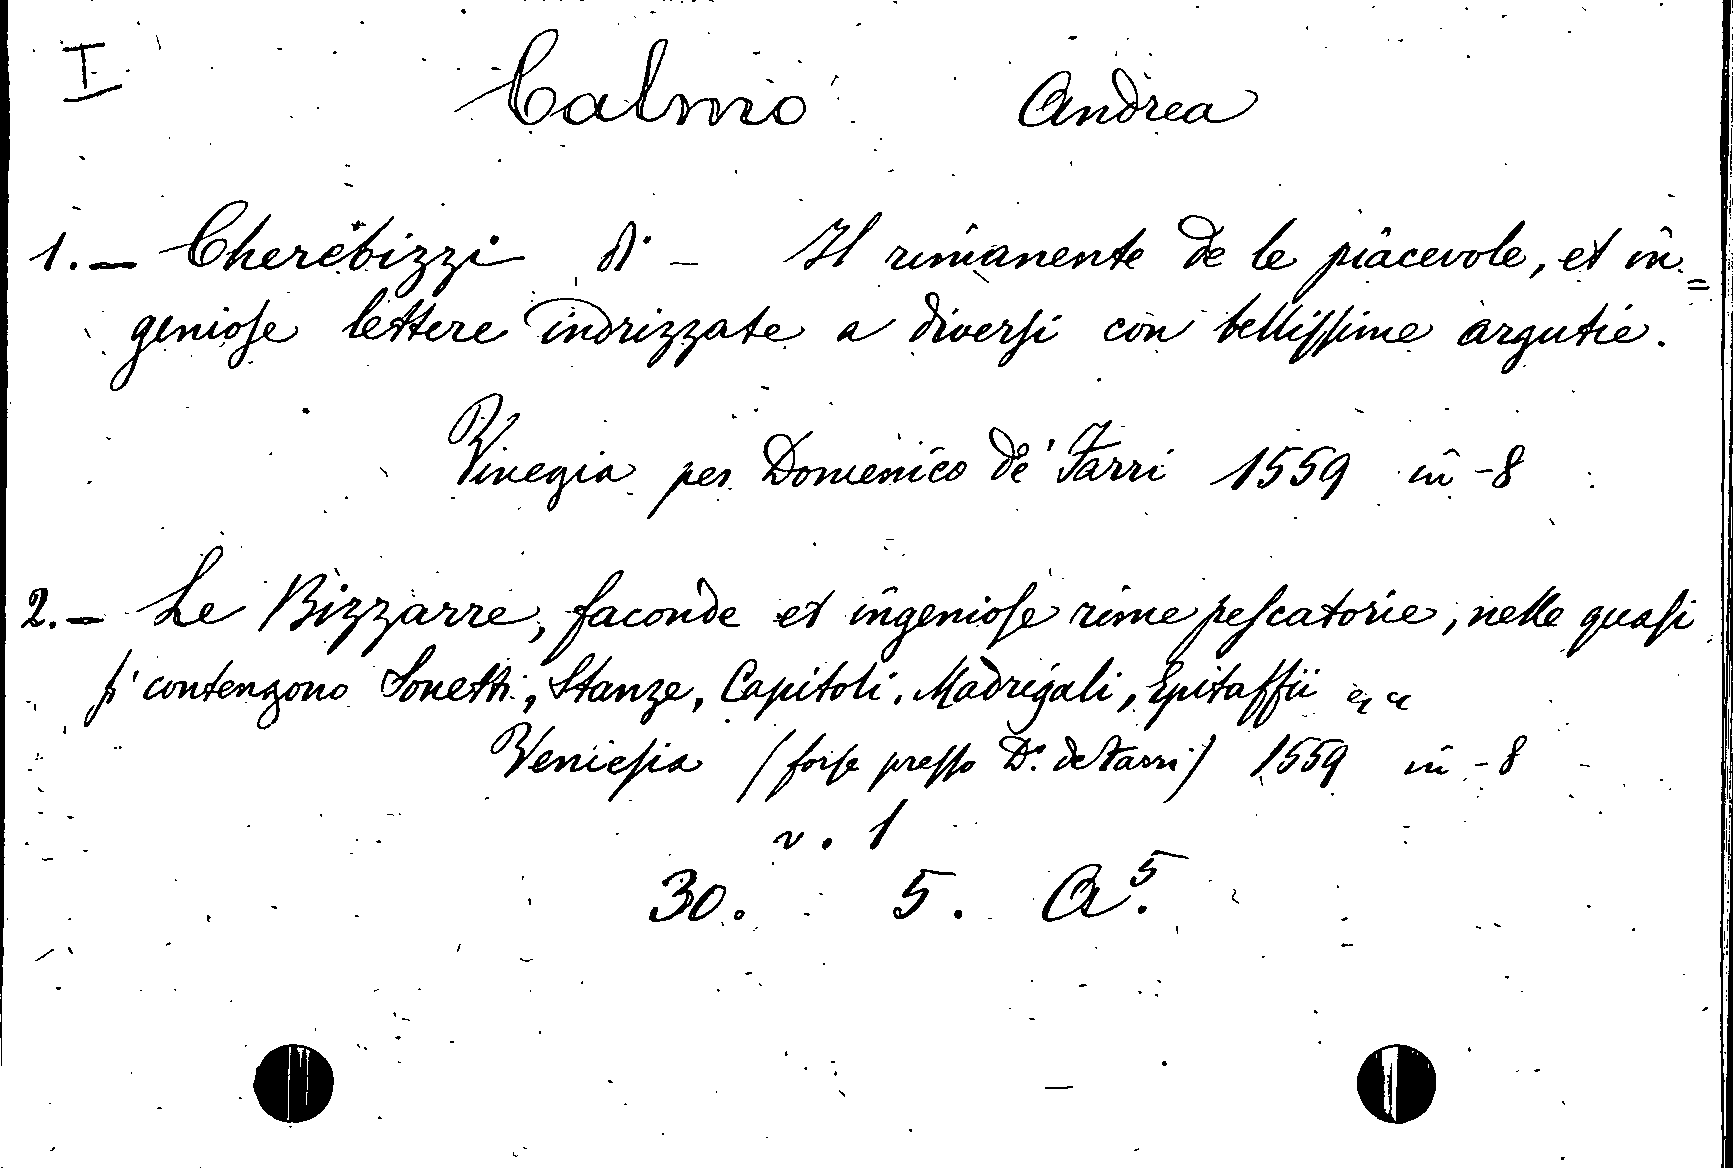 I
Calmo Andrea
1. — Cherebizzi di – Il rimanente de le piacevole, et in=
geniose lettere indrizzate a diversi con bellissime argutie.
Vinegia per Domenico de' Farri 1559 in-8
2. — Le Bizzarre, faconde et ingeniose rime pescatorie, nelle quasi
si contengono Sonetti, Stanze, Capitoli, Madrigali, Epitaffii
Veniesia (forse presso D.º de Farri) 1559 in-8
v. 1
30. 5. A⁵.